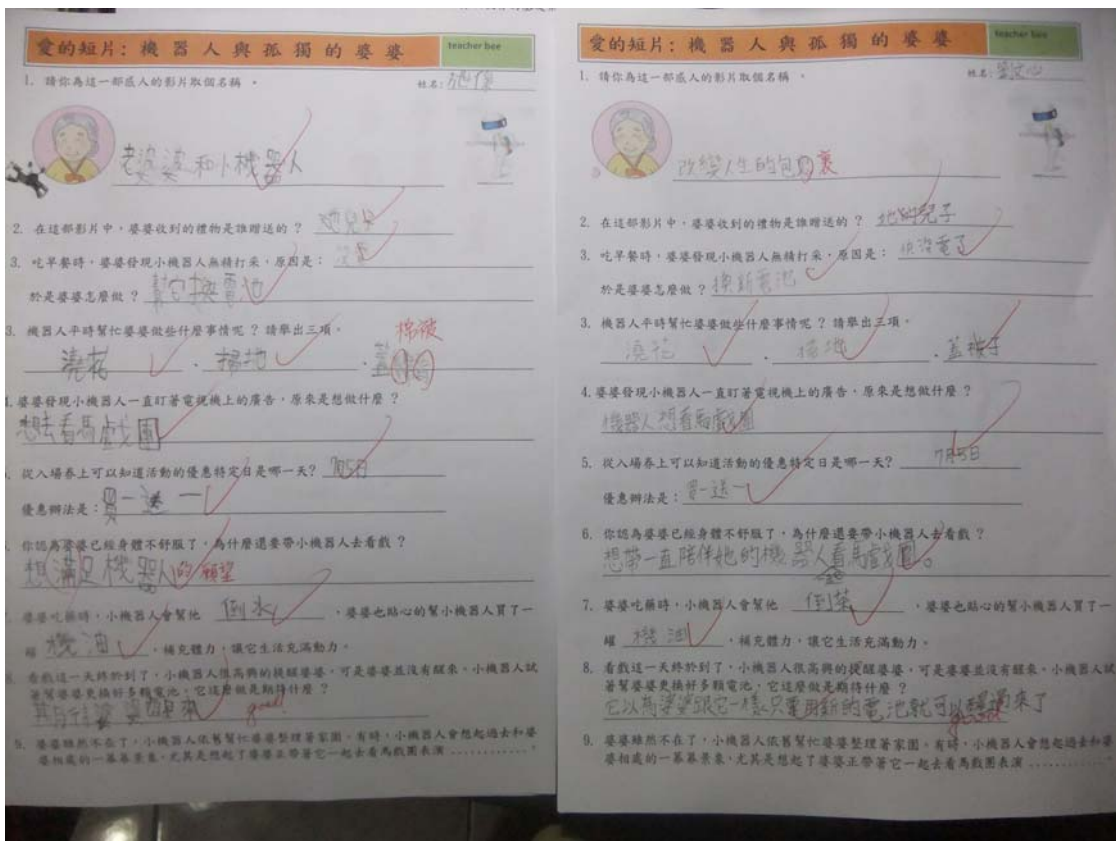 愛的短片：機器人與孤獨的婆婆
teacher bee
1. 請你為這一部感人的影片取個名稱。
姓名：
老婆婆和小機器人
2. 在這部影片中，婆婆收到的禮物是誰贈送的？ 她兒子
3. 吃早餐時，婆婆發現小機器人無精打采，原因是： 沒電
於是婆婆怎麼做？ 幫它換電池
3. 機器人平時幫忙婆婆做些什麼事情呢？請舉出三項。
棉被
澆花 、 掃地 、 蓋
4. 婆婆發現小機器人一直盯著電視機上的廣告，原來是想做什麼？
想去看馬戲團
從入場券上可以知道活動的優惠特定日是哪一天？ 7月5日
優惠辦法是： 買一送一
你認為婆婆已經身體不舒服了，為什麼還要帶小機器人去看戲？
想滿足機器人的願望
婆婆吃藥時，小機器人會幫他 倒水 ，婆婆也貼心的幫小機器人買了一
罐 機油 ，補充體力，讓它生活充滿動力。
看戲這一天終於到了，小機器人很高興的提醒婆婆，可是婆婆並沒有醒來，小機器人試
著幫婆婆更換好多顆電池，它這麼做是期待什麼？
婆婆醒來 good!
9. 婆婆雖然不在了，小機器人依舊幫忙婆婆整理著家園。有時，小機器人會想起過去和婆
婆相處的一幕幕景象，尤其是想起了婆婆正帶著它一起去看馬戲團表演............。
愛的短片：機器人與孤獨的婆婆
teacher bee
1. 請你為這一部感人的影片取個名稱。
姓名：
改變人生的包裹
2. 在這部影片中，婆婆收到的禮物是誰贈送的？ 她的兒子
3. 吃早餐時，婆婆發現小機器人無精打采，原因是： 快沒電了
於是婆婆怎麼做？ 換新電池
3. 機器人平時幫忙婆婆做些什麼事情呢？請舉出三項。
澆花 、 掃地 、 蓋被子
4. 婆婆發現小機器人一直盯著電視機上的廣告，原來是想做什麼？
機器人想看馬戲團
5. 從入場券上可以知道活動的優惠特定日是哪一天？ 7月5日
優惠辦法是： 買一送一
6. 你認為婆婆已經身體不舒服了，為什麼還要帶小機器人去看戲？
想帶一直陪伴她的機器人去看馬戲團。
7. 婆婆吃藥時，小機器人會幫他 倒茶 ，婆婆也貼心的幫小機器人買了一
罐 機油 ，補充體力，讓它生活充滿動力。
8. 看戲這一天終於到了，小機器人很高興的提醒婆婆，可是婆婆並沒有醒來，小機器人試
著幫婆婆更換好多顆電池，它這麼做是期待什麼？
它以為婆婆跟它一樣，只要用新的電池就可以醒過來了
good
9. 婆婆雖然不在了，小機器人依舊幫忙婆婆整理著家園。有時，小機器人會想起過去和婆
婆相處的一幕幕景象，尤其是想起了婆婆正帶著它一起去看馬戲團表演............。